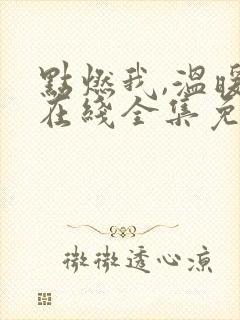 點燃我,溫暖
在綫全集免
微微透心涼